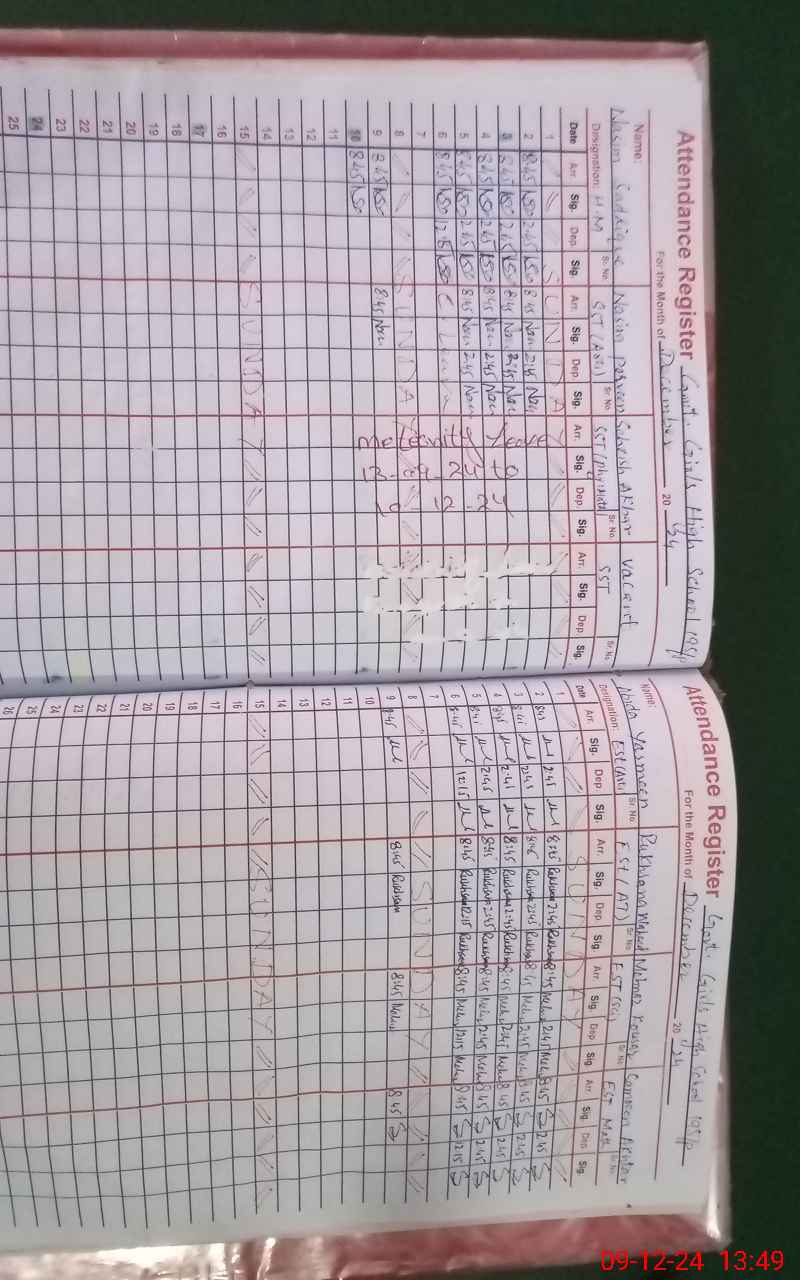 Attendance Register Govt. Girls High School 195/P
For the Month of December 20 24
Name: Nasim Saddique Nasim Perveen Sehrish Akbar Vacant
Designation: H.M Sr. No. SST (Arts) Sr. No. SST (Phy: Math) Sr. No. SST Sr. No.
Date Arr. Sig. Dep. Sig. Arr. Sig. Dep. Sig. Arr. Sig. Dep. Sig. Arr. Sig. Dep. Sig.
1 SUNDAY
2 8:45 2:45 8:45 Nas 2:45 Nas
3 8:45 2:45 8:45 Nas 2:45 Nas
4 8:45 2:45 8:45 Nas 2:45 Nas
5 8:45 2:45 8:45 Nas 2:45 Nas
6 8:45 12:15 C. Leave
7
8 SUNDAY
9 8:45 8:45 Nas
10 8:45
Meternity Leave
to
10-12-24
11
12
13
14
15 SUNDAY
16
17
18
19
20
21
22
23
24
25
Attendance Register Govt. Girls High School 195/P
For the Month of December 20 24
Name: Abida Yasmeen Rukhsana Majeed Mehnaz Kouser Samreen Akhtar
Designation: EST (Arts) Sr. No. EST (AT) Sr. No. EST (Sci) Sr. No. EST Math Sr. No.
Date Arr. Sig. Dep. Sig. Arr. Sig. Dep. Sig. Arr. Sig. Dep. Sig. Arr. Sig. Dep. Sig.
1 SUNDAY
2 8:45 2:45 8:45 Rukhsana 2:45 Rukhsana 8:45 2:45 8:45 2:45
3 8:45 2:45 8:45 Rukhsana 2:45 Rukhsana 8:45 2:45 8:45 2:45
4 8:45 2:45 8:45 Rukhsana 2:45 Rukhsana 8:45 2:45 8:45 2:45
5 8:45 2:45 8:45 Rukhsana 2:45 Rukhsana 8:45 2:45 8:45 2:45
6 8:45 12:15 8:45 Rukhsana 12:15 Rukhsana 8:45 12:15 8:45 12:15
7
8 SUNDAY
9 8:45 8:45 Rukhsana 8:45 8:45
10
11
12
13
14
15 SUNDAY
16
17
18
19
20
21
22
23
24
25
26
09-12-24 13:49